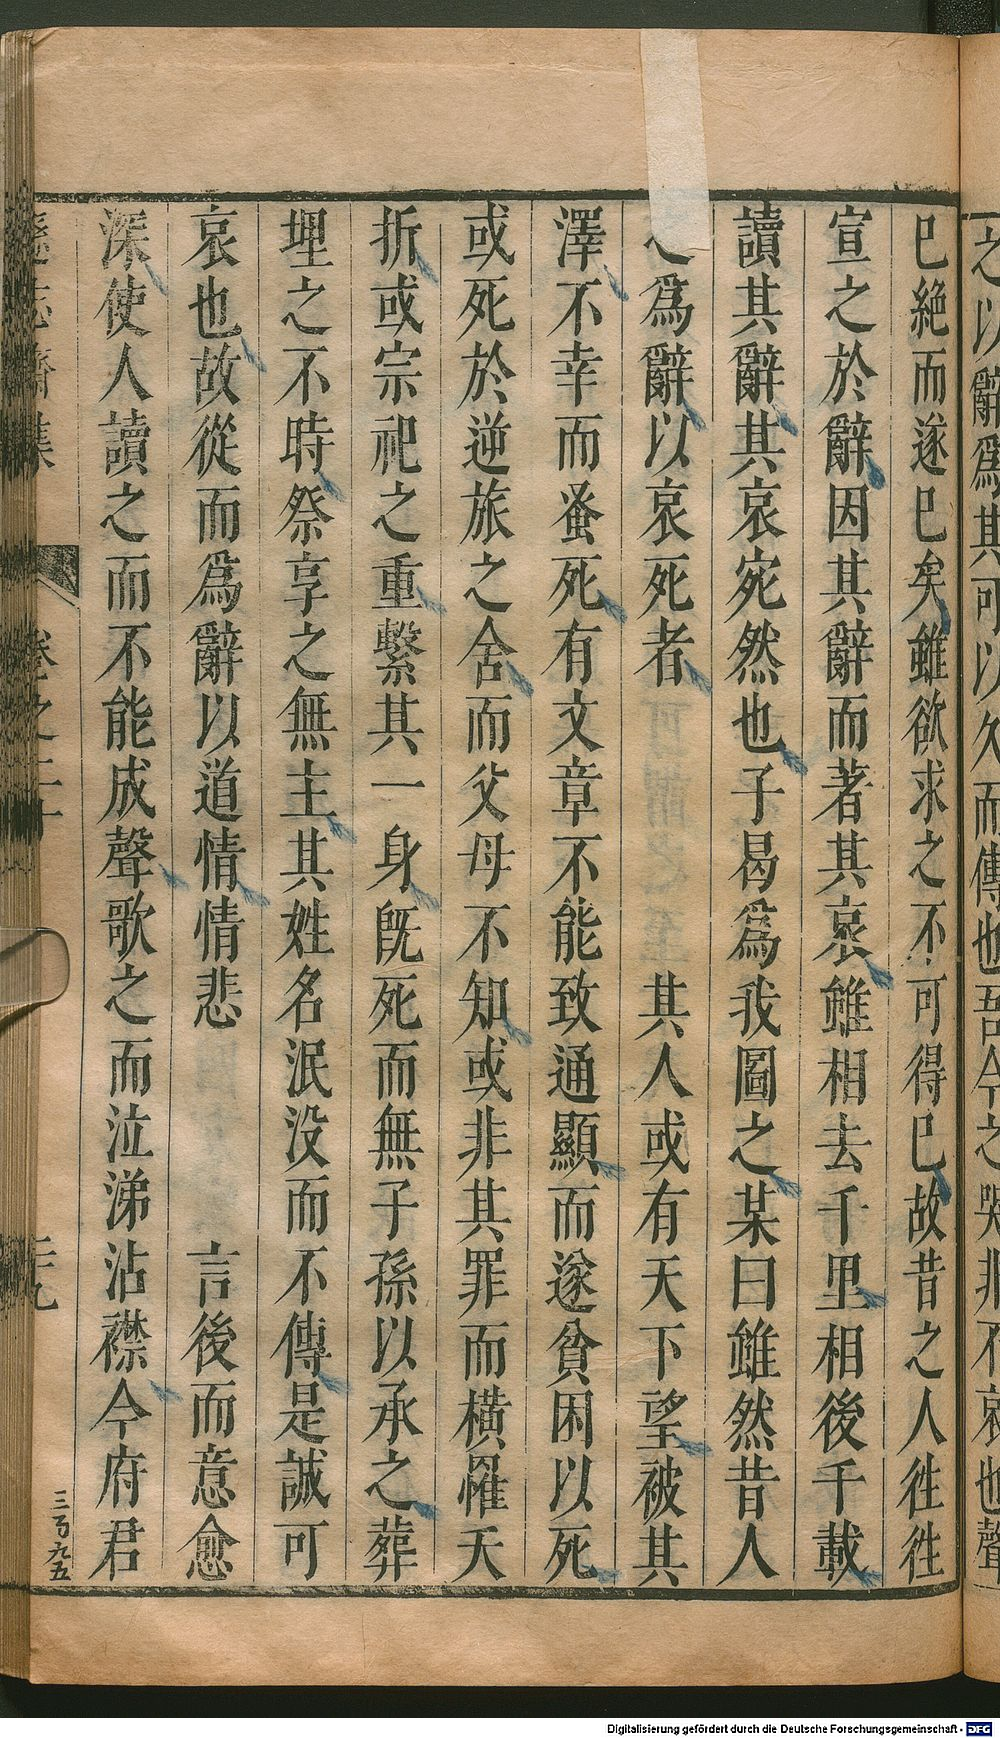 之以辭爲其可以久而傳也吾今之哭非不哀也聲
已絶而遂已矣雖欲求之不可得已故昔之人徃徃
宣之於辭因其辭而著其哀雖相去千里相後千載
讀其辭其哀宛然也子曷爲我圖之某曰雖然昔人
之爲辭以哀死者 其人或有天下望被其
澤不幸而蚤死有文章不能致通顯而遂貧困以死
或死於逆旅之舍而父母不知或非其罪而橫罹夭
折或宗祀之重繫其一身旣死而無子孫以承之葬
埋之不時祭享之無主其姓名泯没而不傳是誠可
哀也故從而爲辭以道情情悲 言後而意愈
深使人讀之而不能成聲歌之而泣涕沾襟今府君
遜志齋集 卷之二十 三九
三百九五
Digitalisierung gefördert durch die Deutsche Forschungsgemeinschaft - DFG